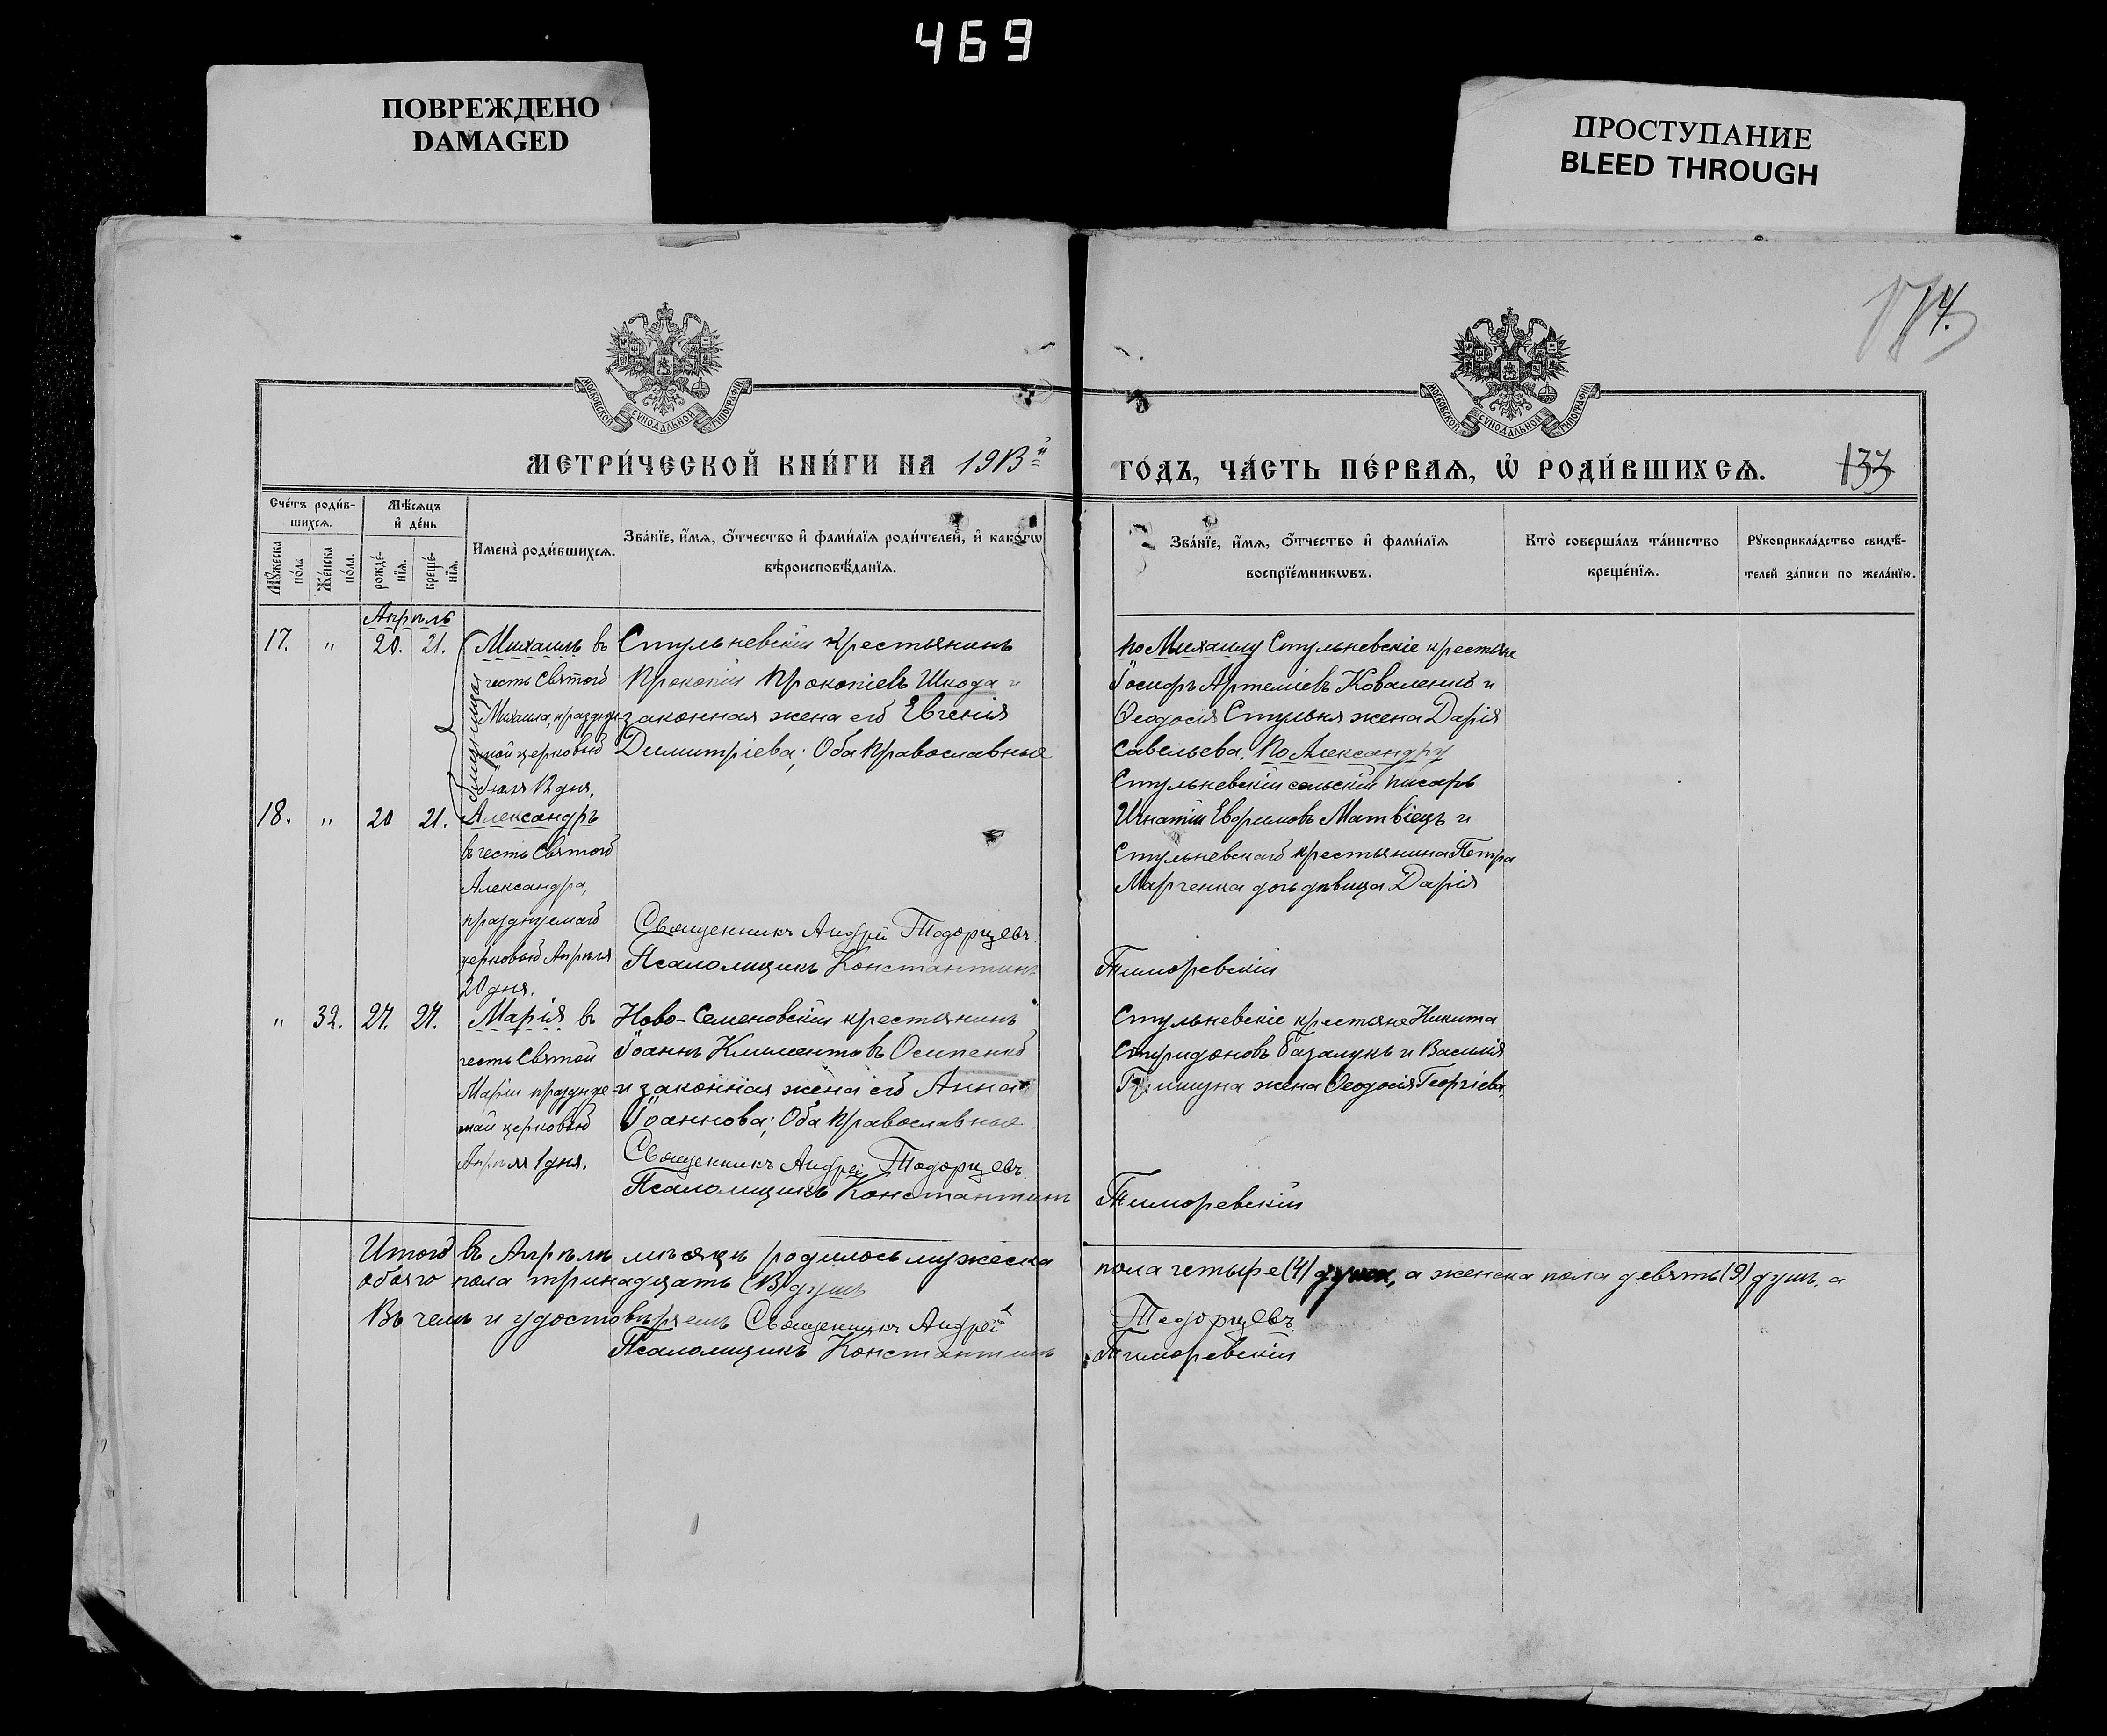 469
ПОВРЕЖДЕНО
DAMAGED
ПРОСТУПАНИЕ
BLEED THROUGH
174.
МОСКОВСКОЙ СѴНОДАЛЬНОЙ ТИПОГРАФІИ
МОСКОВСКОЙ СѴНОДАЛЬНОЙ ТИПОГРАФІИ
МЕТРИ́ЧЕСКОЙ КНИ́ГИ НА 1913й
ГО́ДЪ, ЧА́СТЬ ПЕ́РВАѦ, Ѡ҆ РОДИ́ВШИХСѦ. 133
Сче́тъ роди́в-
шихсѧ.
Мꙋ́жеска по́ла
Же́нска по́ла.
Мѣ́сѧцъ
и҆ де́нь
рожде́-нїѧ.
креще́-нїѧ.
Имена̀ роди́вшихсѧ.
Зва́нїе, и҆́мѧ, ѻ҆́тчество и҆ фами́лїѧ роди́телей, и҆ како́гѡ
вѣроисповѣ́данїѧ.
Зва́нїе, и҆́мѧ, ѻ҆́тчество и҆ фами́лїѧ
воспрїе́мникѡвъ.
Кто̀ соверша́лъ та́инство
креще́нїѧ.
Рꙋкоприкла́дство свидѣ́-
телей за́писи по жела́нїю.
Апрѣль
17. " 20. 21.
Михаилъ въ
честь Святого
Михаила, праздну
мой церковью
Іюля 12 дня,
Стульневскій крестьянинъ
Прокопій Прокопіевъ Шкода и
законная жена его Евгенія
Димитріева; Оба Православные
по Михаилу Стульневскіе крестьяне
Іосифъ Артеміевъ Коваленко и
Ѳеодосія Стульня жена Дарія
Савельева. По Александру
Стульневскій сельскій писарь
Игнатій Евфимовъ Матвіецъ и
Стульневскаго крестьянина Петра
Марченка дочь дѣвица Дарія
18. " 20 21.
Александръ
въ честь Святого
Александра,
празднуемаго
церковью Апрѣля
20 дня.
Священникъ Андрей Тодорцевъ
Псаломщикъ Константинъ
Тиморевскій
" 32. 27. 27.
Марія въ
честь Святой
Маріи праздуе
мой церковью
Апрѣля 1 дня.
Ново-Семеновскій крестьянинъ
Іоаннъ Климентовъ Осипенко
и законная жена его Анна
Іоаннова; Оба Православные
Священникъ Андрей Тодорцевъ
Псаломщикъ Константинъ
Стульневскіе крестьяне Никита
Спиридоновъ Базалукъ и Василія
жена Ѳеодосія Георгіева,
Тиморевскій
Итого въ Апрѣлѣ мѣсяцѣ родилось мужеска пола четыре (4) души, а женска пола девять (9) душъ, а
обоего пола тринадцать (13) душъ
Въ чемъ и удостовѣряемъ Священникъ Андрей Тодорцевъ
Псаломщикъ Константинъ Тиморевскій